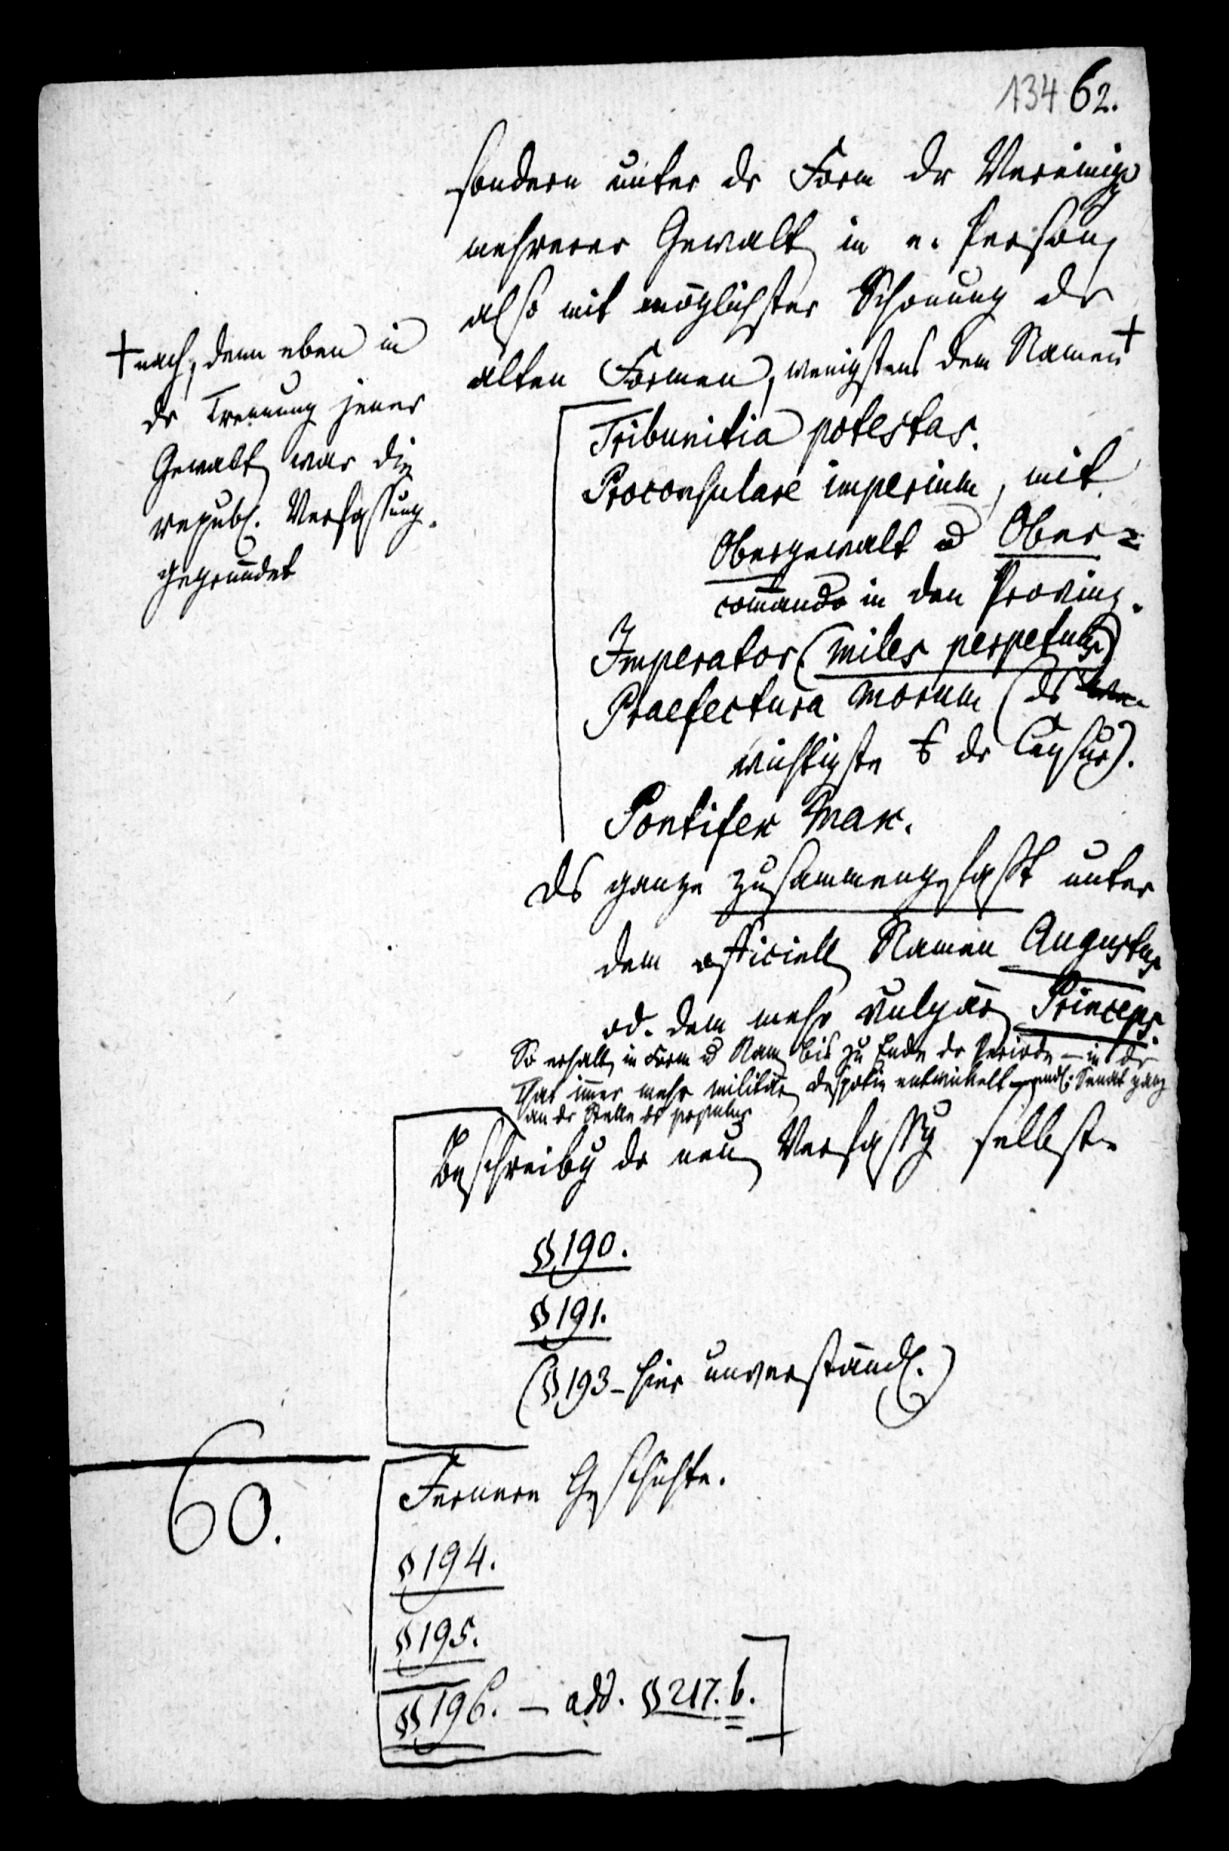 134 62.
sondern unter dr Form dr Vereinigg
mehrerer Gewalten in e. Person,
also mit möglichster Schonung dr
alten Formen, wenigstens dem Namen +
+ nach, denn eben in
dr Trennung jener
Gewalten war die
republ. Verfassung
gegründet
Tribunitia potestas.
Proconsulare imperium, mit
Obergewalt u Ober=
commando in den Provinz.
Imperator (miles perpetuus)
Praefectura morum (ds
wichtigste dr Censur).
Pontifex Max.
ds ganze zusammengefaßt unter
dem officiellen Namen Augustus
od. dem mehr vulgären Princeps.
So erhalten in Form u Namen bis zu Ende dr Periode – in dr
That immer mehr militär. Despotie entwickelt – endl. Senat ganz
an dr Stelle ds populus
Beschreibg dr neuen Verfassg selbst.
§ 190.
§ 191.
(§ 193 – hier unverständl.)
60.
Fernere Geschichte.
§ 194.
§ 195.
§ 196. – add. § 217. b.